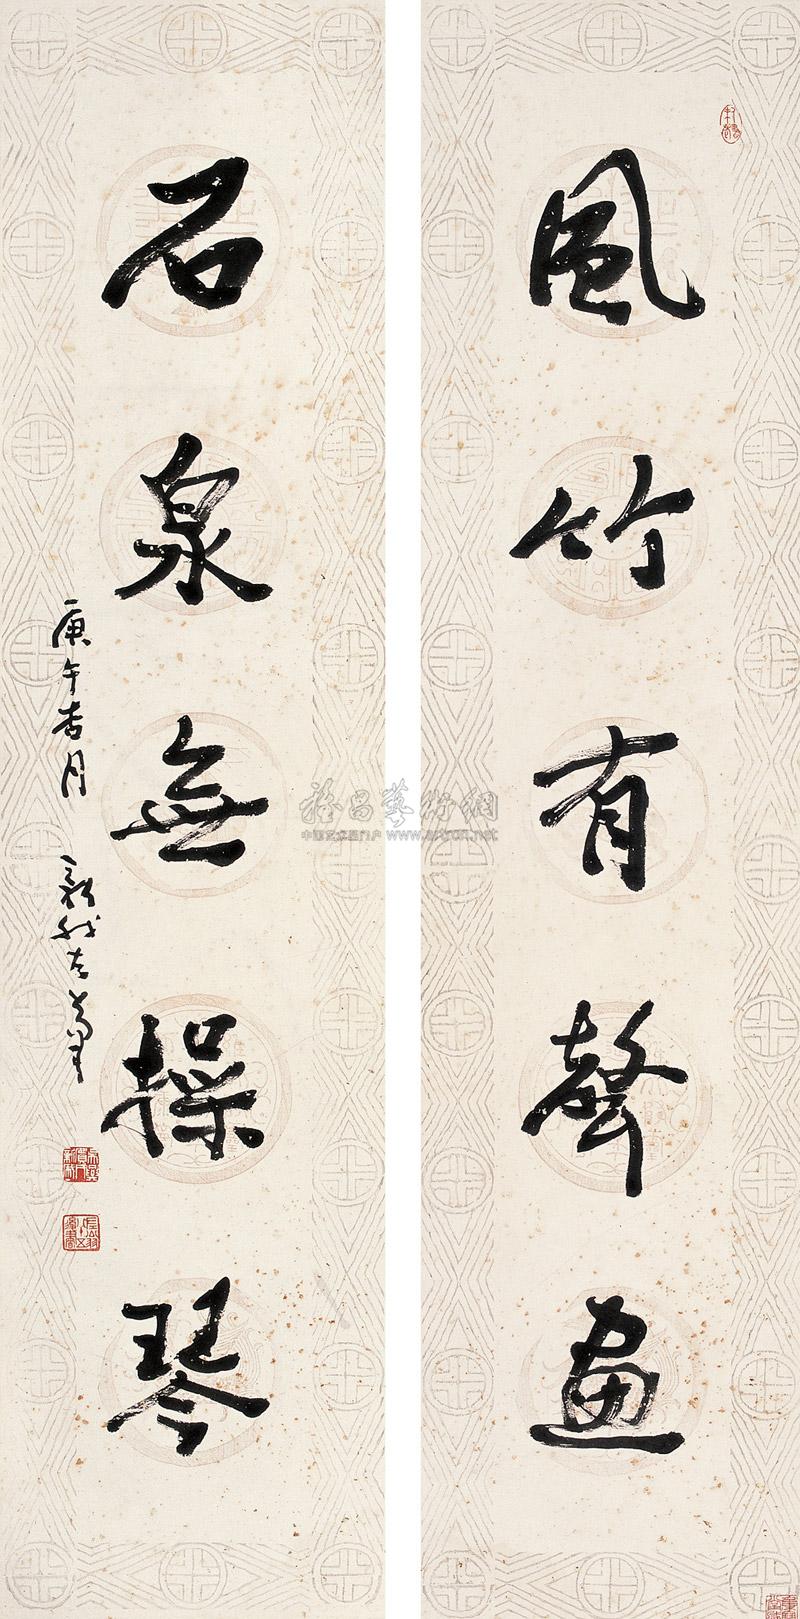 風竹有聲畫
石泉無操琴
庚午吉月
雅昌藝術網
中国艺术品门户 www.artron.net